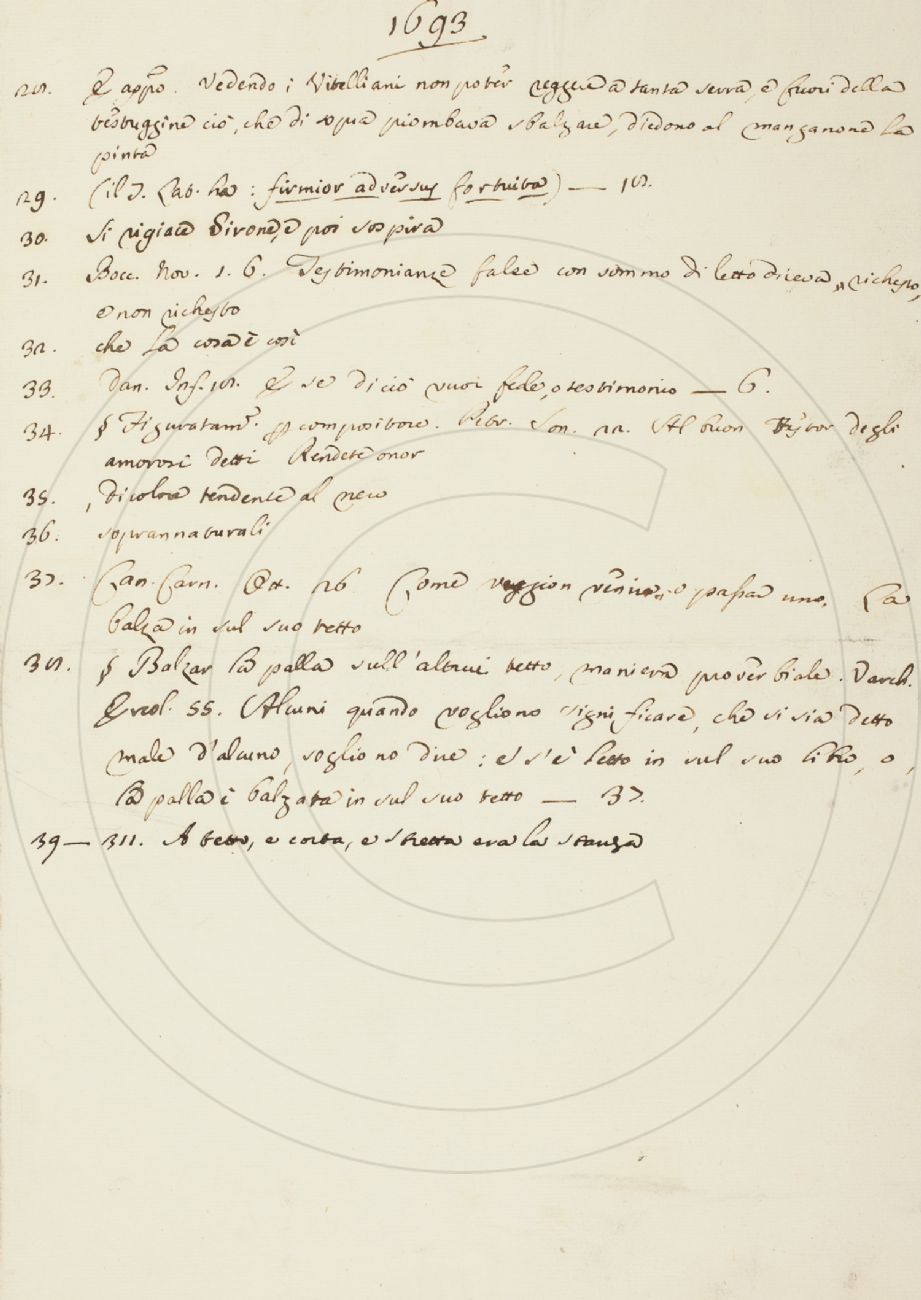 1693
28. E appo. Vedendo i Vitelliani non poter reggere a tanta serra, e fuori della
testuggine ciò, che di sopra piombava sbalzare, diedono al manganone la
pinta
29. (il T. Lat. ha: firmior adversus fortuita) — 18.
30. Si rigiace Girone, e poi sospira
31. Bocc. Nov. 1. 6. Testimonianze false con sommo diletto diceva, richesto,
e non richesto
32. che la cosa è così
33. Dan. Inf. 18. E se di ciò vuoi fede, o testimonio — 6.
34. § Figuratam. p compositore. Petr. Son. 22. Al buon Testor degli
amorosi detti Rendete onor
35. , di colore tendente al nero
36. soprannaturali
37. Can. Carn. Ott. 26 Come veggion venire, o passar uno, La
balza in sul suo tetto
38. § Balzar la palla sull'altrui tetto, maniera proverbiale. Varch.
Ercol. 55. Alcuni quando vogliono significare, che si sia detto
male d'alcuno, sogliono dire: e' s'è letto in sul suo libro, o,
la palla è balzata in sul suo tetto — 37.
39 — 311. A tetto, e corta, e stretta era la stanza